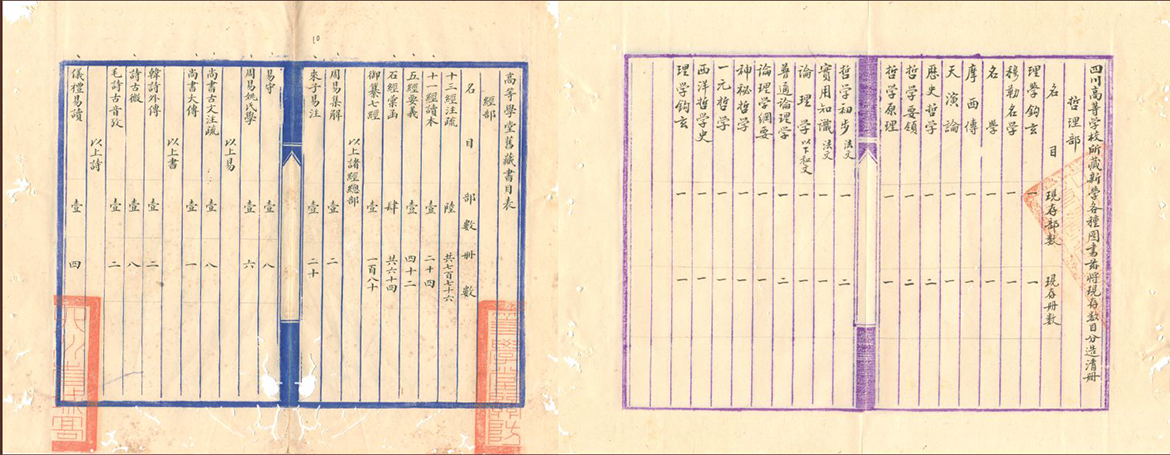 四川高等學校所藏新學各種圖書茲將現存數目分造清冊
哲理部
名目 現存部數 現存冊數
理學鈎玄 一 一
穆勒名學 一 一
名學 一 一
摩西傳 一 一
天演論 一 一
歷史哲學 一 二
哲學要領 一 二
哲學原理 一 一
哲學初步 法文 一 二
實用知識 法文 一 一
論理學 以下和文 一 一
普通論理學 一 二
論理學綱要 一 一
神秘哲學 一 一
一元哲學 一 一
西洋哲學史 一 一
理學鈎玄 一 一
10
高等學堂舊藏書目表
經部
名目 部數 冊數
十三經注疏 陸 共七百七十六
十一經讀本 壹 二十四
五經要義 壹 四十二
石經彙函 肆 共六十四
御纂七經 壹 一百八十
以上諸經總部
周易集解 壹 二
來子易注 壹 二十
易守 壹 八
周易姚氏學 壹 六
以上易
尚書古文注疏 壹 八
尚書大傳 壹 一
以上書
韓詩外傳 壹 二
詩古微 壹 八
毛詩古音攷 壹 二
以上詩
儀禮易讀 壹 四